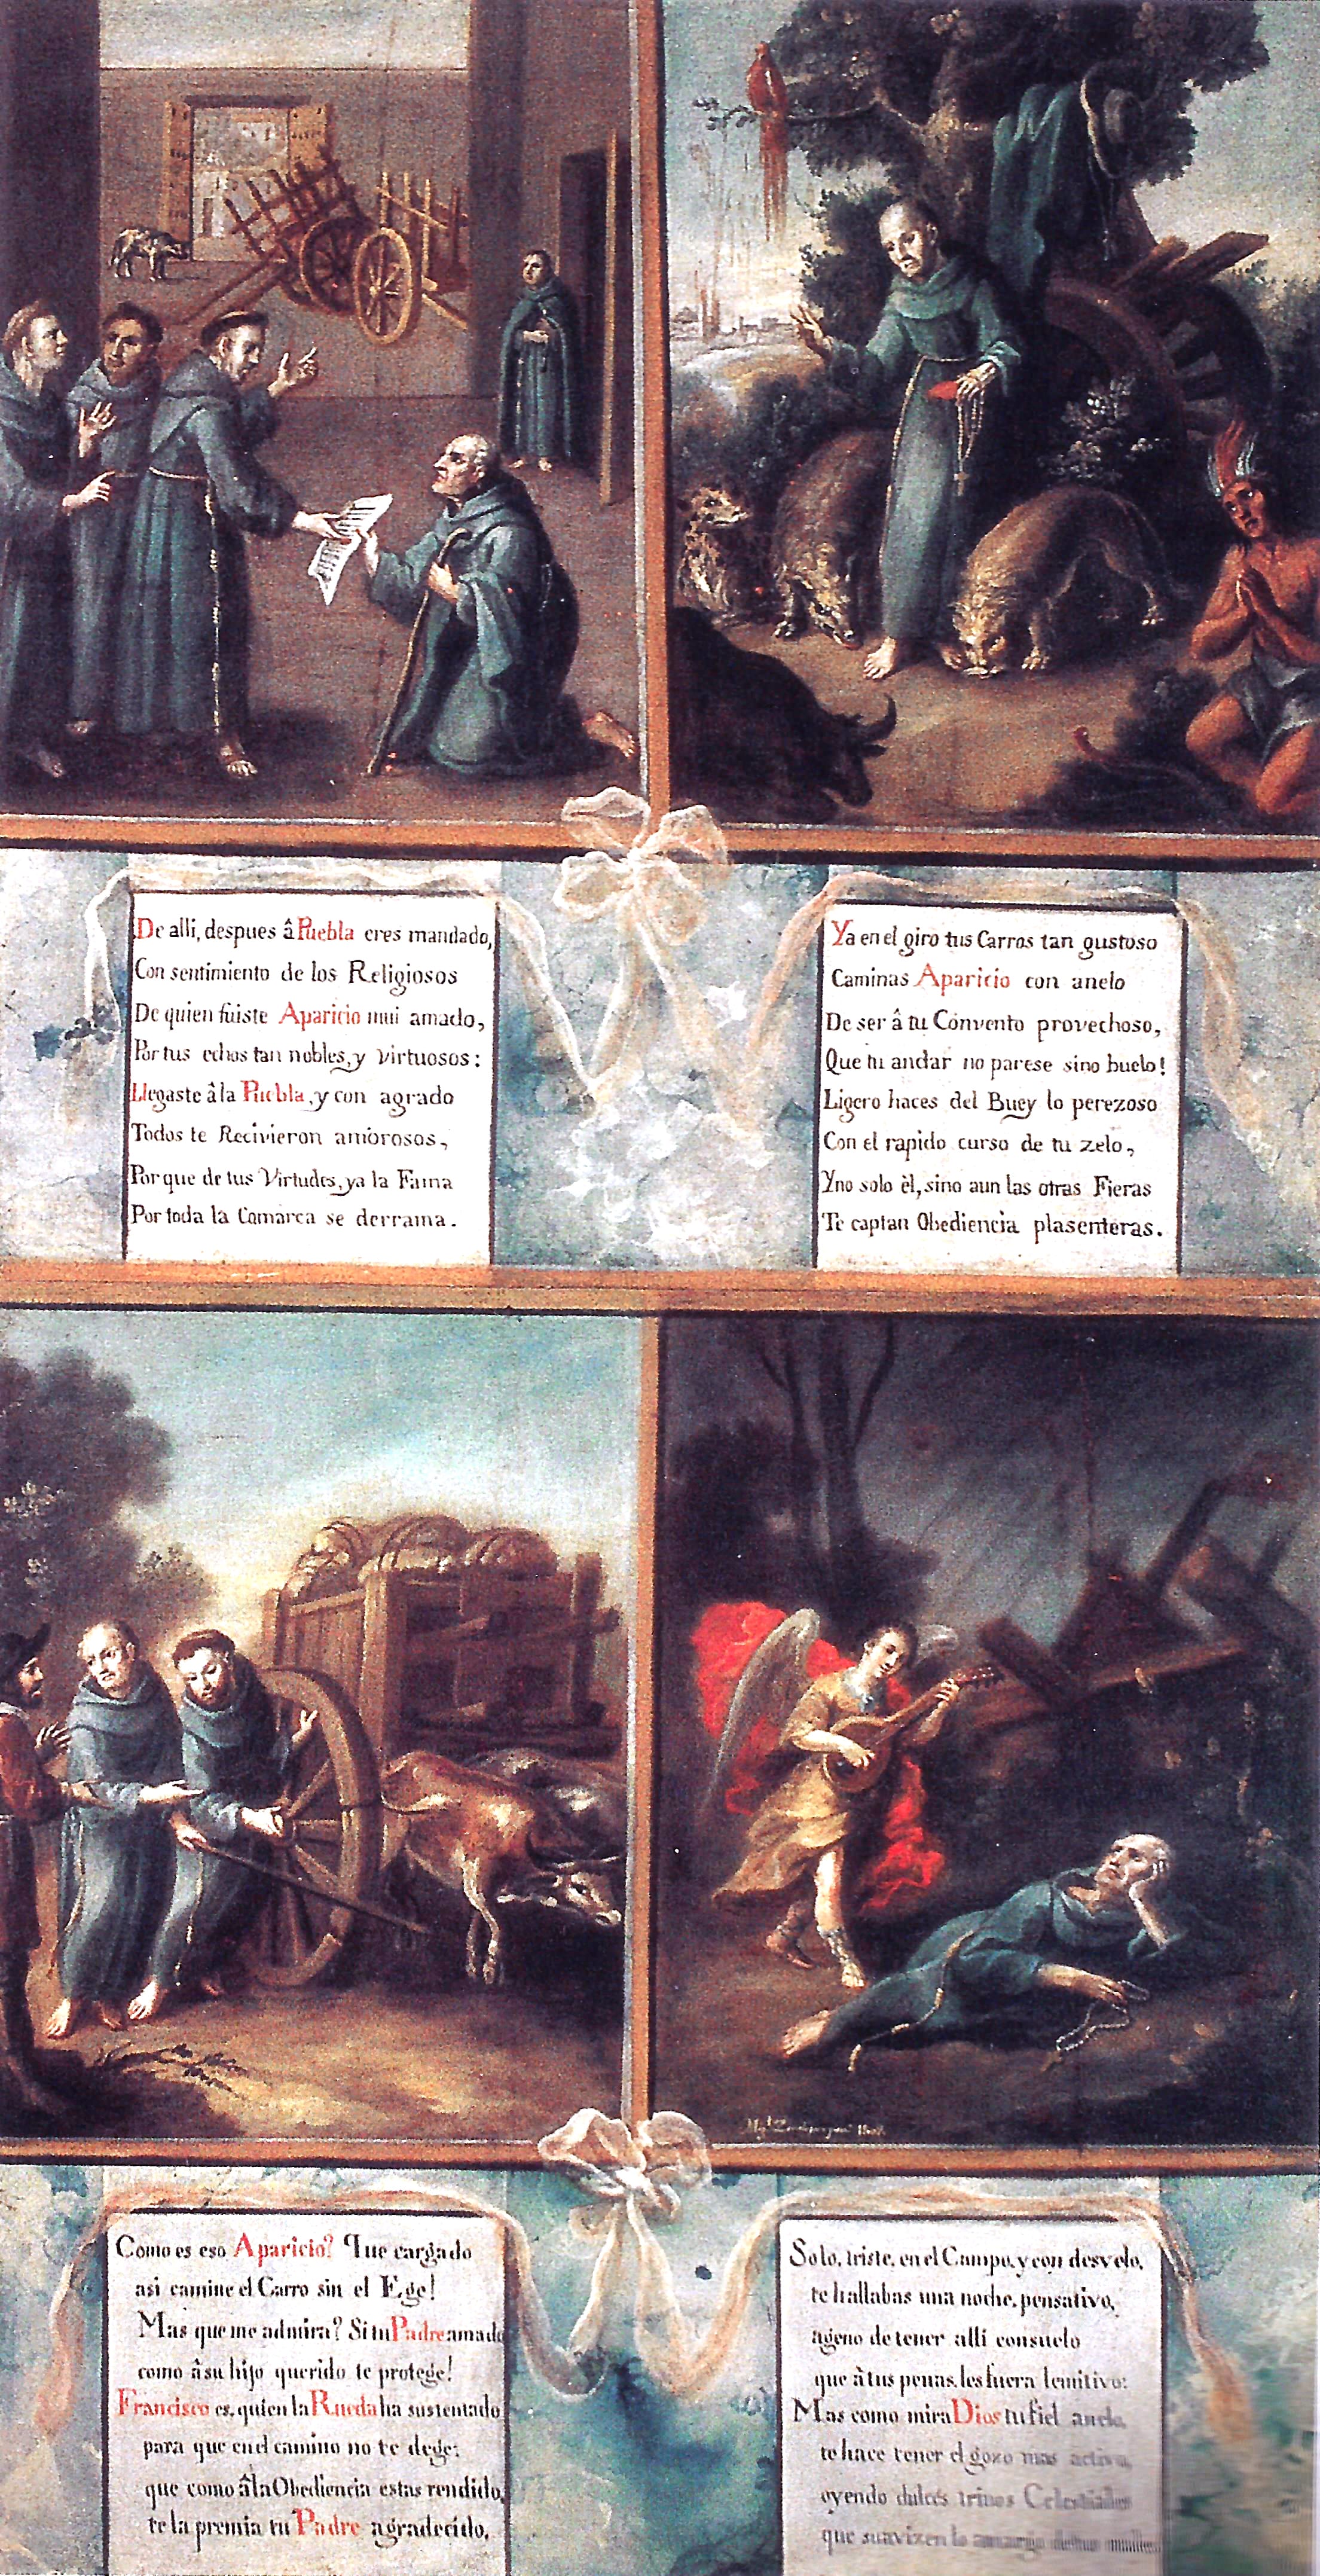 De alli, despues â Puebla eres mandado,
Con sentimiento de los Religiosos
De quien fuiste Aparicio mui amado,
Por tus echos tan nobles, y virtuosos:
Llegaste â la Puebla, y con agrado
Todos te Recivieron amorosos,
Porque de tus Virtudes, ya la Fama
Por toda la Comarca se derrama.
Ya en el giro tus Carros tan gustoso
Caminas Aparicio con anelo
De ser â tu Convento provechoso,
Que tu andar no parese sino buelo!
Ligero haces del Buey lo perezoso
Con el rapido curso de tu zelo,
Y no solo èl, sino aun las otras Fieras
Te captan Obediencia plasenteras.
Como es eso Aparicio? Que cargado
asi camine el Carro sin el Ege!
Mas que me admira? Si tu Padre amado
como â su hijo querido te protege!
Francisco es, quien la Rueda ha sustentado
para que en el camino no te dege:
que como â la Obediencia estas rendido,
te la premia tu Padre agradecido.
Solo, triste, en el Campo, y con desvelo,
te hallabas una noche, pensativo,
ageno de tener alli consuelo
que à tus penas, les fuera lenitivo:
Mas como mira Dios tu fiel anelo,
te hace tener el gozo mas activo,
oyendo dulces trinos Celestiales
que suavizen lo amargo